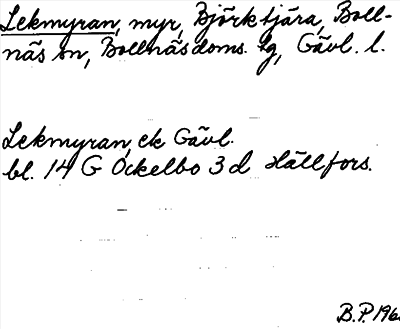 Lekmyran, myr, Björktjära, Boll-
näs sn, Bollnäs doms. hg, Gävl. l.
Lekmyran, ek Gävl.
bl. 14 G Ockelbo 3 d Hällfors.
B.P. 196